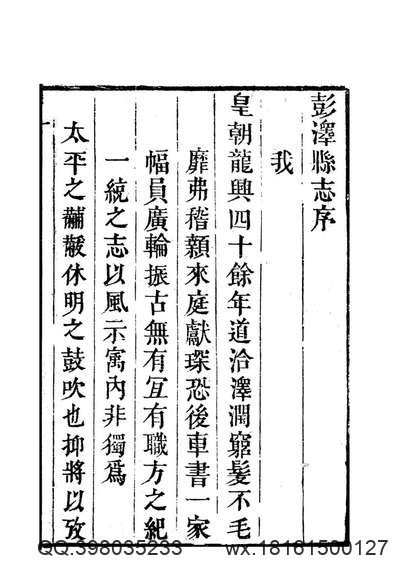 彭澤縣志序
我
皇朝龍興四十餘年道洽澤潤窮髮不毛
靡弗稽顙來庭獻琛恐後車書一家
幅員廣輪振古無有宜有職方之紀
一統之志以風示寓內非獨爲
太平之黼黻休明之鼓吹也抑將以攷
QQ:398035233 wx:18161500127